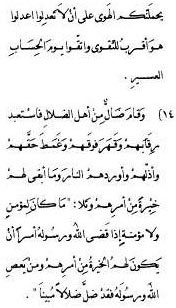 يحملنكم الهوى على أن لا تعدلوا اعدلوا
هو أقرب للتقوى واتقوا يوم الحساب
العسير .
(١٤) وقام ضال من أهل الضلال فاستعبد
رقابهم وقهر فوقهم وغمط حقهم
وأذلهم وأوردهم النار وما أبقى لهم
خيرة من أمرهم وتلا: "ما كان لمؤمن
ولا مؤمنة إذا قضى الله ورسوله أمرا أن
يكون لهم الخيرة من أمرهم ومن يعص
الله ورسوله فقد ضل ضلالا مبينا" .